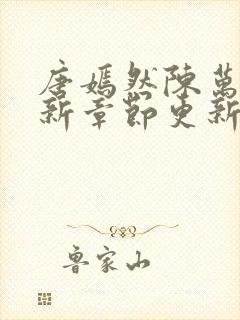 唐嫣然陳萬
新章節更新
魯家山